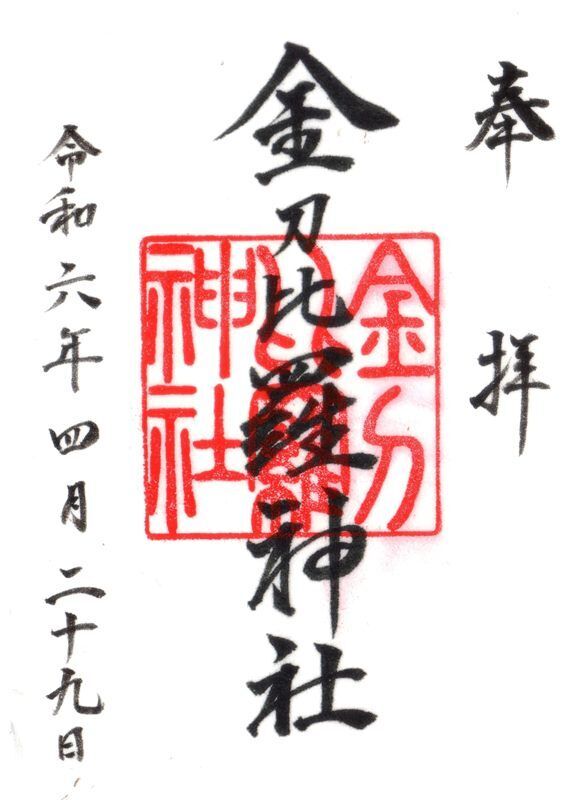 奉拝
金刀比羅神社
金刀比羅神社
令和六年四月二十九日